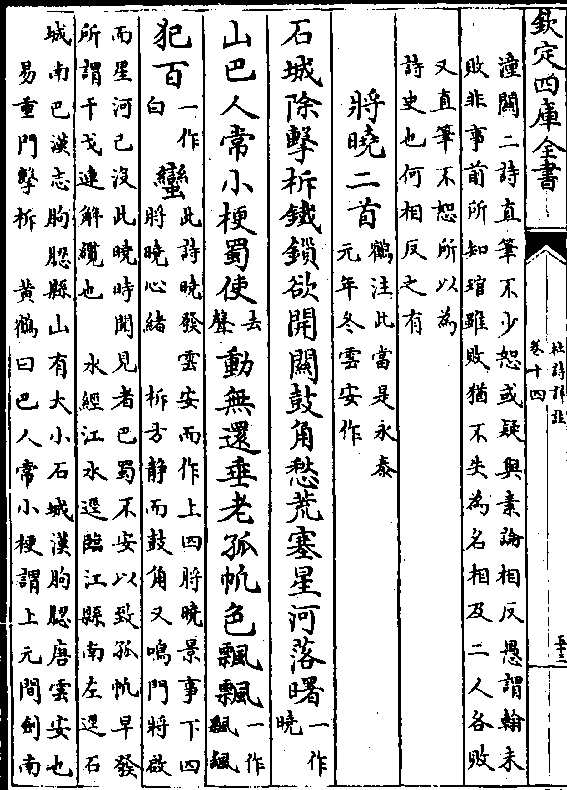 欽定四庫全書
杜詩詳註
卷十四
潼關二詩直筆不少恕或疑與素論相反愚謂翰未
敗非事前所知琯雖敗猶不失為名相及二人各敗
又直筆不恕所以為
詩史也何相反之有
將曉二首 鶴注此當是永泰
元年冬雲安作
石城除擊柝鐵鎖欲開關鼓角愁荒塞星河落曙 一作
曉
山巴人常小梗蜀使 去
聲 動無還垂老孤帆色飄飄 一作
犯百 一作
白 蠻 此詩曉發雲安而作上四將曉景事下四
將曉心緒 柝方静而鼓角又鳴門將啟
而星河已沒此曉時聞見者巴蜀不安以致孤帆早發
所謂干戈連解纜也 水經江水逕臨江縣南左逕石
城南巴漢志朐䏰縣山有大小石城漢朐䏰唐雲安也
易重門擊柝 黃鶴曰巴人常小梗謂上元間劍南